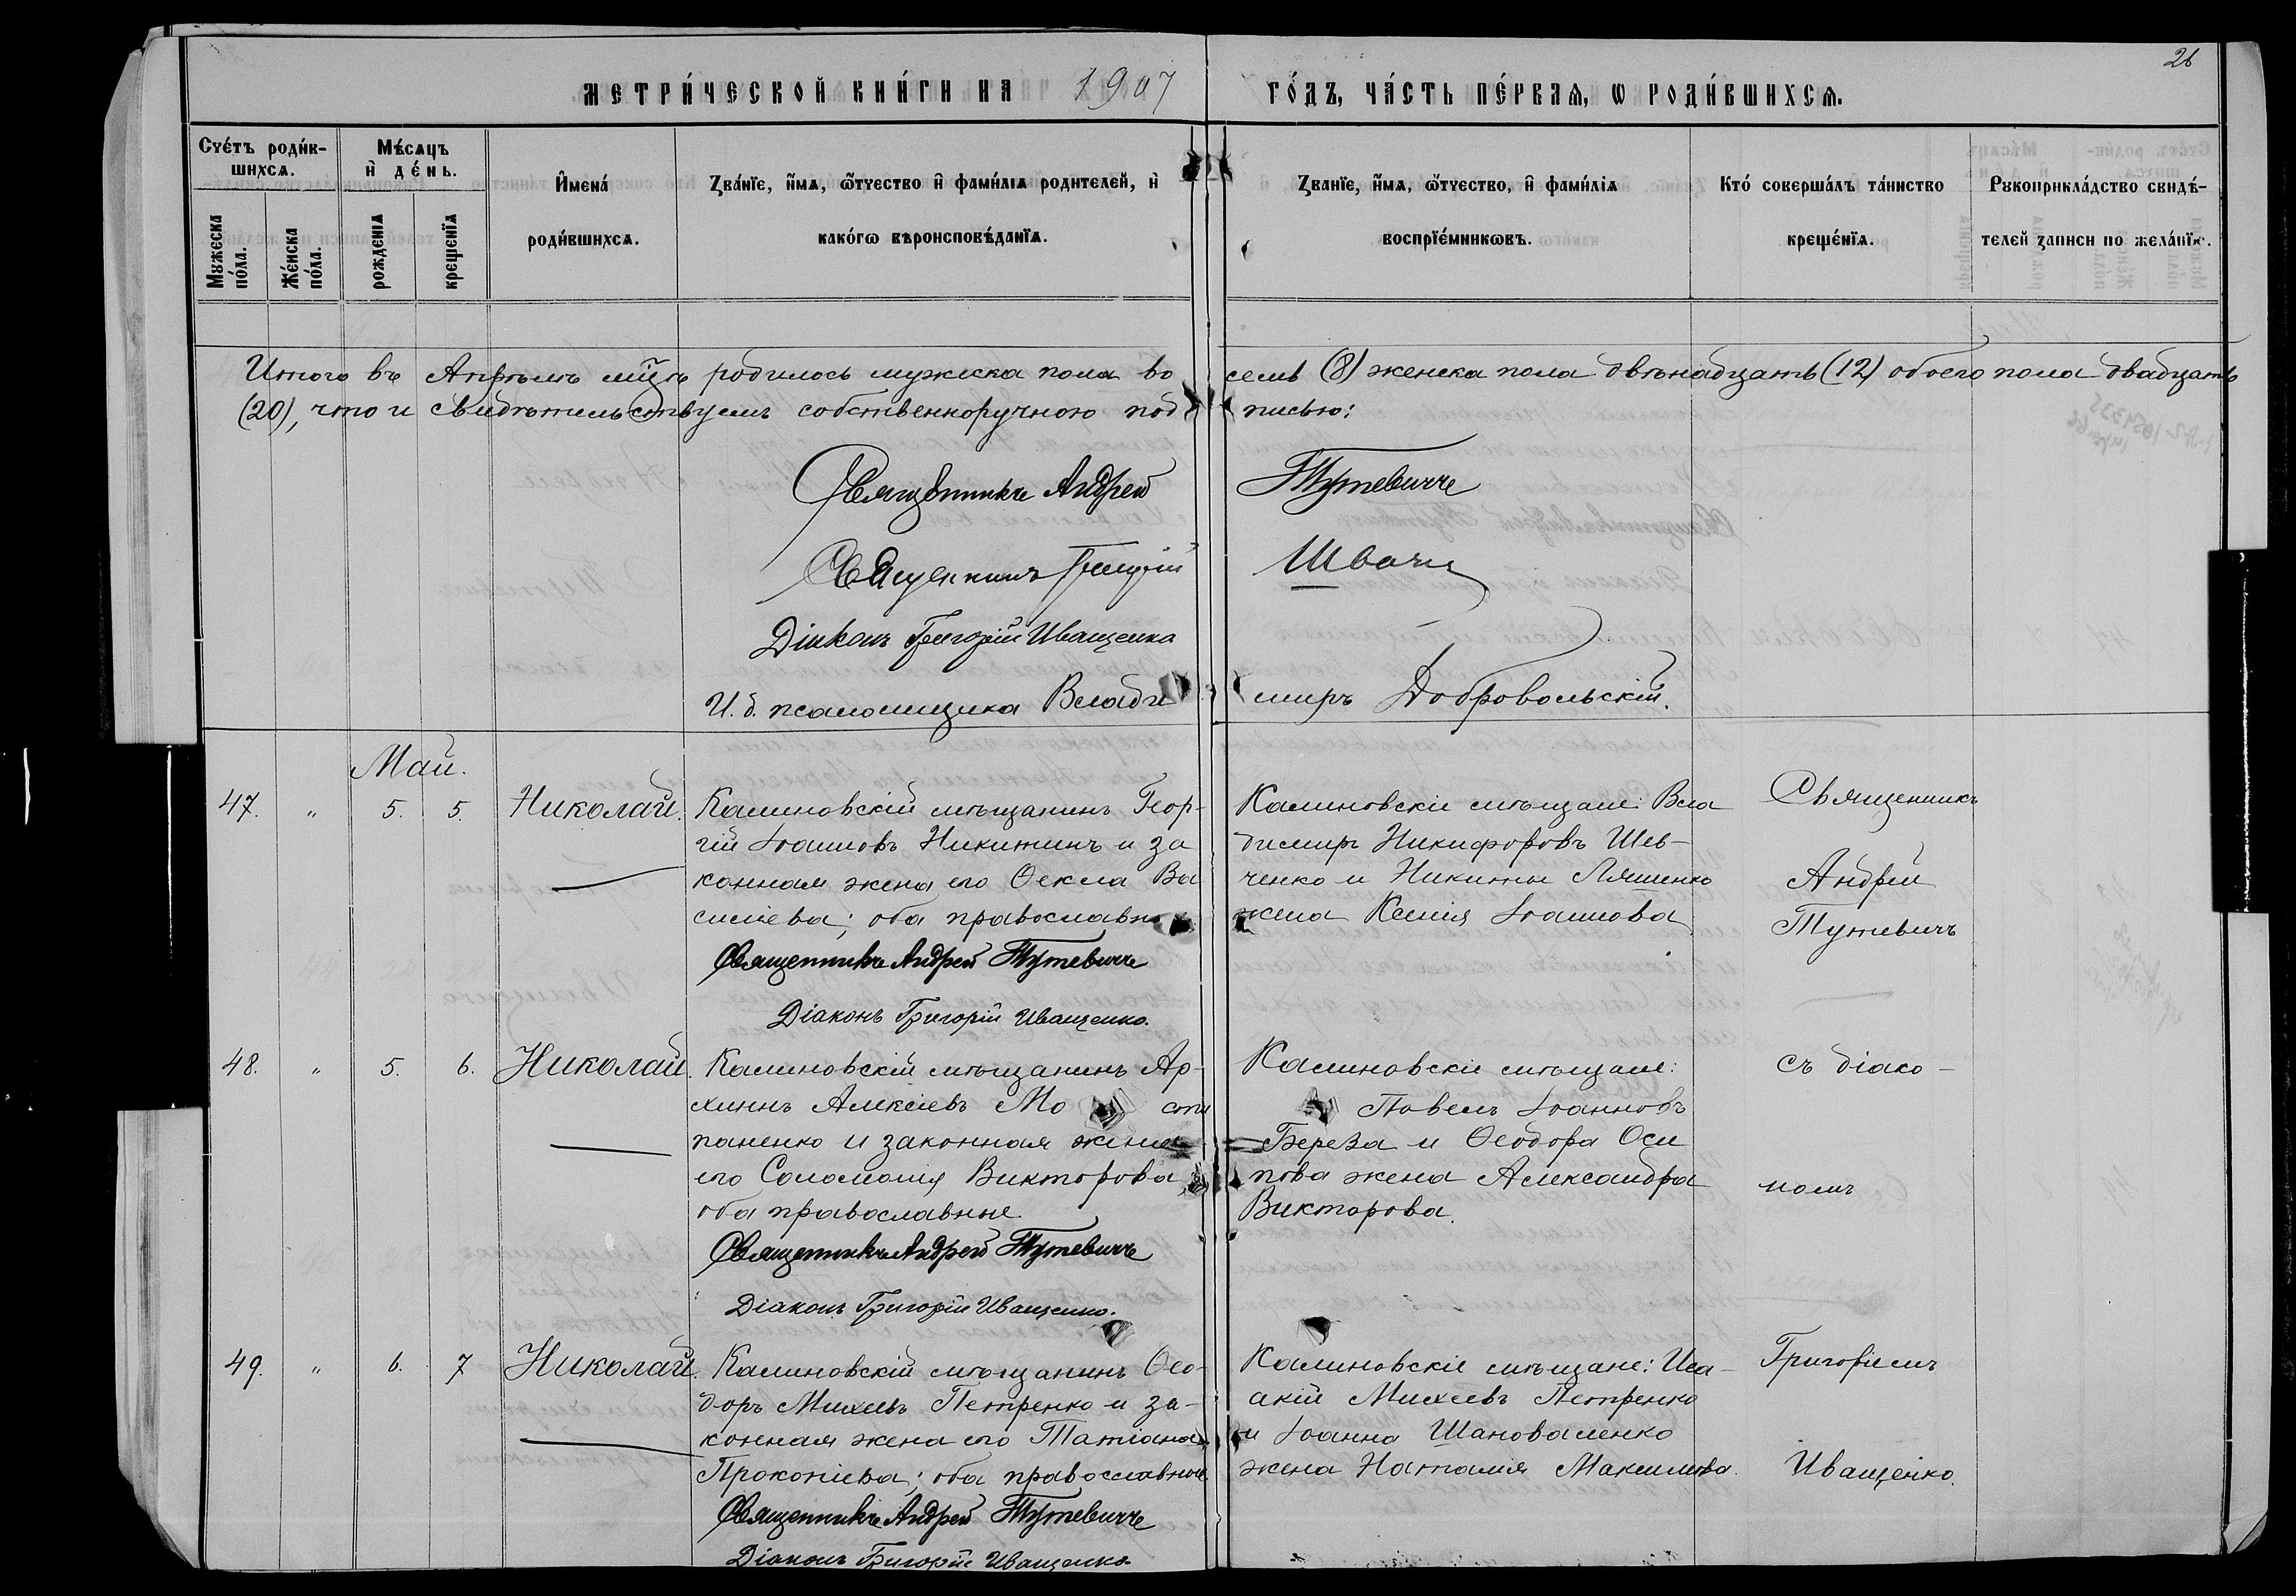 26
МЕТРИ́ЧЕСКОЙ КНИ́ГИ НА 1907 ГО́ДЪ, ЧА́СТЬ ПЕ́РВАЯ, Ѡ РОДИ́ВШИХСЯ.
Счéтъ роди́в-
шихсѧ.
Мужеска по́ла.
Же́нска по́ла.
Мѣ́сѧцъ
и҆ де́нь.
рожденїѧ
крещенїѧ
И҆мена́
роди́вшихсѧ.
Зва́нїе, и҆́мѧ, ѻ҆́тчество и҆ фами́лїѧ родителей, и҆
како́гѡ вѣроисповѣ́данїѧ.
Званїе, и҆́мѧ, ѻ҆́тчество, и҆ фами́лїѧ
воспрїе́мникѡвъ.
Кто́ соверша́лъ та́инство
креще́нїѧ.
Рукоприкла́дство свидѣ́-
телей записи по жела́нїю.
Итого въ Апрѣлѣ мцѣ родилось мужеска пола во семь (8) женска пола двѣнадцать (12) обоего пола двадцать
(20), что и свидѣтельствуемъ собственноручною под писью:
Священникъ Андрей Тутевичъ
Священникъ Григорій Швачи
Діаконъ Григорій Иващенко
И. д. псаломщика Влади миръ Добровольскій.
Май.
47. " 5. 5. Николай.
Калиновскій мѣщанинъ Геор-
гій Іоанновъ Никитинъ и за
конная жена его Ѳекла Ва
силіева; оба православные
Священникъ Андрей Тутевичъ
Діаконъ Григорій Иващенко.
Калиновскіе мѣщане: Вла
димиръ Никифоровъ Шев-
ченко и Никиты Ляшенко
жена Ксенія Іоаннова
Священникъ
Андрей
Тутевичъ
48. " 5. 6. Николай.
Калиновскій мѣщанинъ Ар-
хиппъ Алексіевъ Мо сти
паненко и законная жена
его Соломонія Викторова
оба православные.
Священникъ Андрей Тутевичъ
Діаконъ Григорій Иващенко.
Калиновскіе мѣщане:
Павелъ Іоанновъ
Береза и Ѳеодора Оси
пова жена Александра
Викторова.
съ діако-
номъ
49. " 6. 7 Николай.
Калиновскій мѣщанинъ Ѳео-
доръ Михеевъ Петренко и за-
конная жена его Татіана
Прокопіева; оба православные
Священникъ Андрей Тутевичъ
Діаконъ Григорій Иващенко.
Калиновскіе мѣщане: Иса-
акій Михеевъ Петренко
и Іоанна Шаповаленко
жена Наталія Максимова.
Григоріемъ
Иващенко.